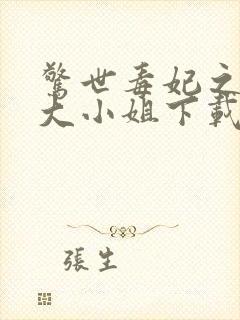 驚世毒妃之
大小姐下載
張生